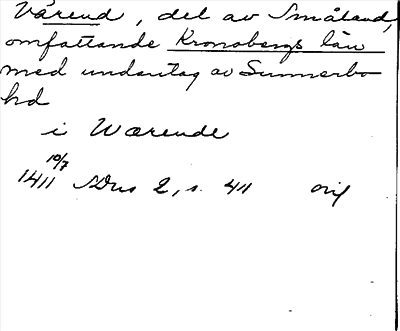 Värend, del av Småland,
omfattande Kronobergs län
med undantag av Sunnerbo
hd
i Wærende
10/7
1411 SDns 2, s. 411 orig